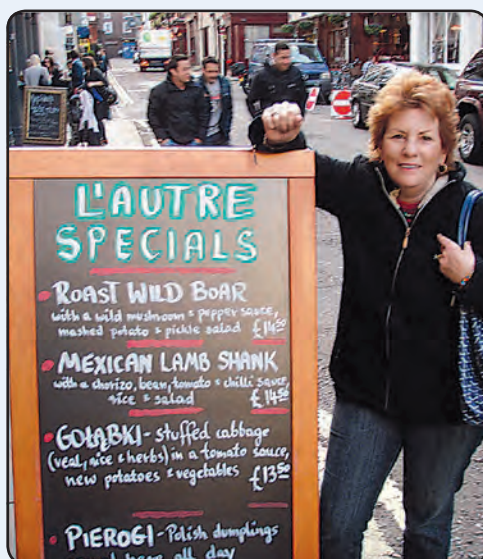 L'AUTRE
SPECIALS
ROAST WILD BOAR
with a wild mushroom & pepper sauce,
mashed potato & pickle salad £14.50
MEXICAN LAMB SHANK
with a chorizo, bean, tomato & chilli sauce,
rice & salad £14.50
GOŁĄBKI - stuffed cabbage
(veal, rice & herbs) in a tomato sauce,
new potatoes & vegetables £13.50
PIEROGI - Polish dumplings
all day